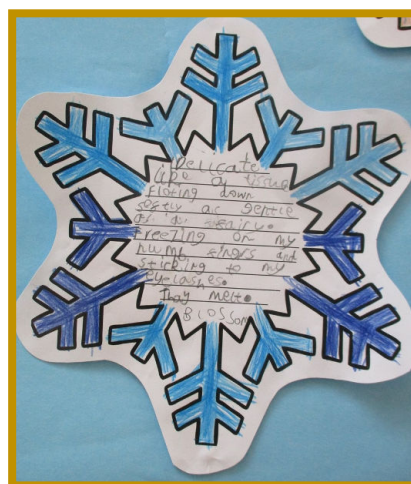 Delicate
like a tissue
floting down
softly as gentle
as a feairy.
Freezing on my
numb fingrs and
sticking to my
eyelashes.
They melt.
Blossom